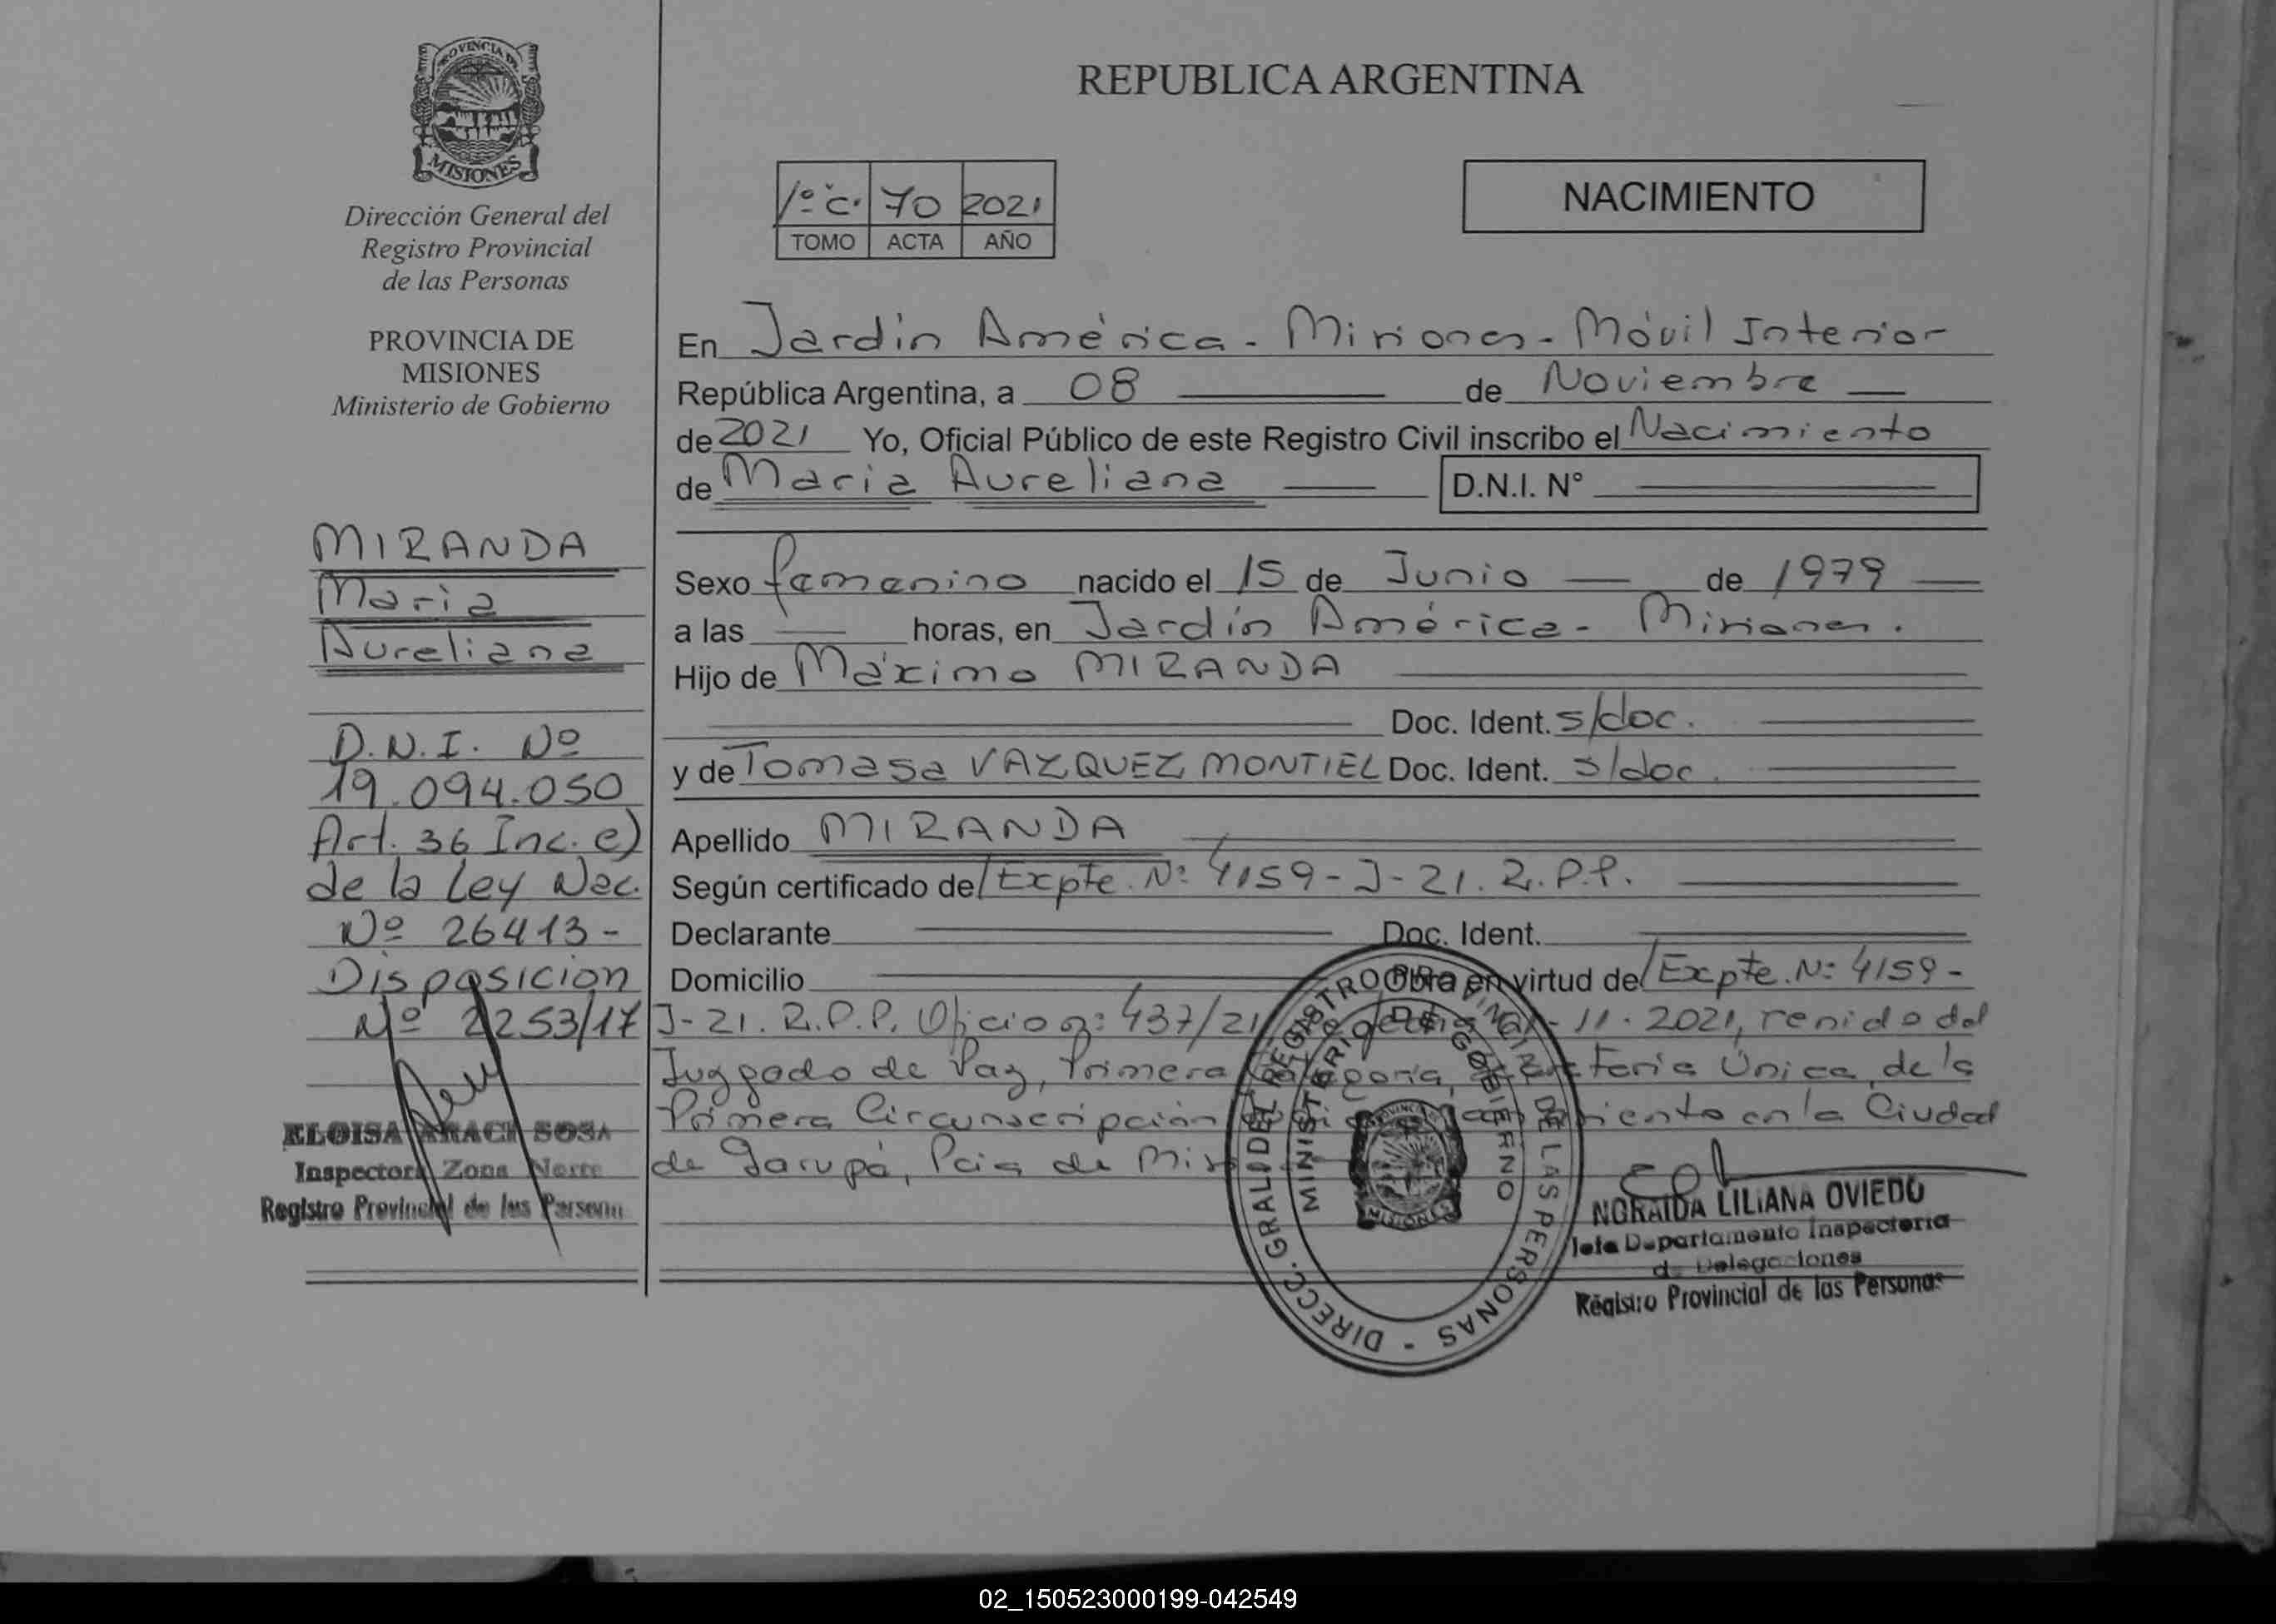 PROVINCIA DE
MISIONES
Dirección General del
Registro Provincial
de las Personas
PROVINCIA DE
MISIONES
Ministerio de Gobierno
MIRANDA
Maria
Aureliana
D.N.I. Nº
19.094.050
Art. 36 Inc. e)
de la Ley Nac.
Nº 26413-
Disposicion
Nº 2253/17
ELOISA ARACI SOSA
Inspectora Zona Norte
Registro Provincial de las Persona
REPUBLICA ARGENTINA
1º C. 70 2021
TOMO ACTA AÑO
NACIMIENTO
En Jardín América - Misiones - Móvil Interior
República Argentina, a 08 de Noviembre
de 2021 Yo, Oficial Público de este Registro Civil inscribo el Nacimiento
de Maria Aureliana D.N.I. N°
Sexo femenino nacido el 15 de Junio de 1979
a las horas, en Jardín América - Misiones.
Hijo de Máximo MIRANDA
Doc. Ident. s/doc.
y de Tomasa VAZQUEZ MONTIEL Doc. Ident. s/doc.
Apellido MIRANDA
Según certificado de/Expte. Nº 4159-J-21. R.P.P.
Declarante Doc. Ident.
Domicilio Obra en virtud de/Expte. Nº 4159-
J-21. R.P.P. Oficio nº 437/21 - 11-2021, venido del
Juzgado de Paz, Primera Categoría, Secretaría Única, de la
Primera Circunscripción en la Ciudad
de Garupá, Pcia de
DIRECC. GRAL. DEL REGISTRO PROVINCIAL DE LAS PERSONAS -
MINISTERIO DE GOBIERNO
MISIONES
NORAIDA LILIANA OVIEDO
Jefa Departamento Inspectoria
de Delegaciones
Registro Provincial de las Personas
02_150523000199-042549